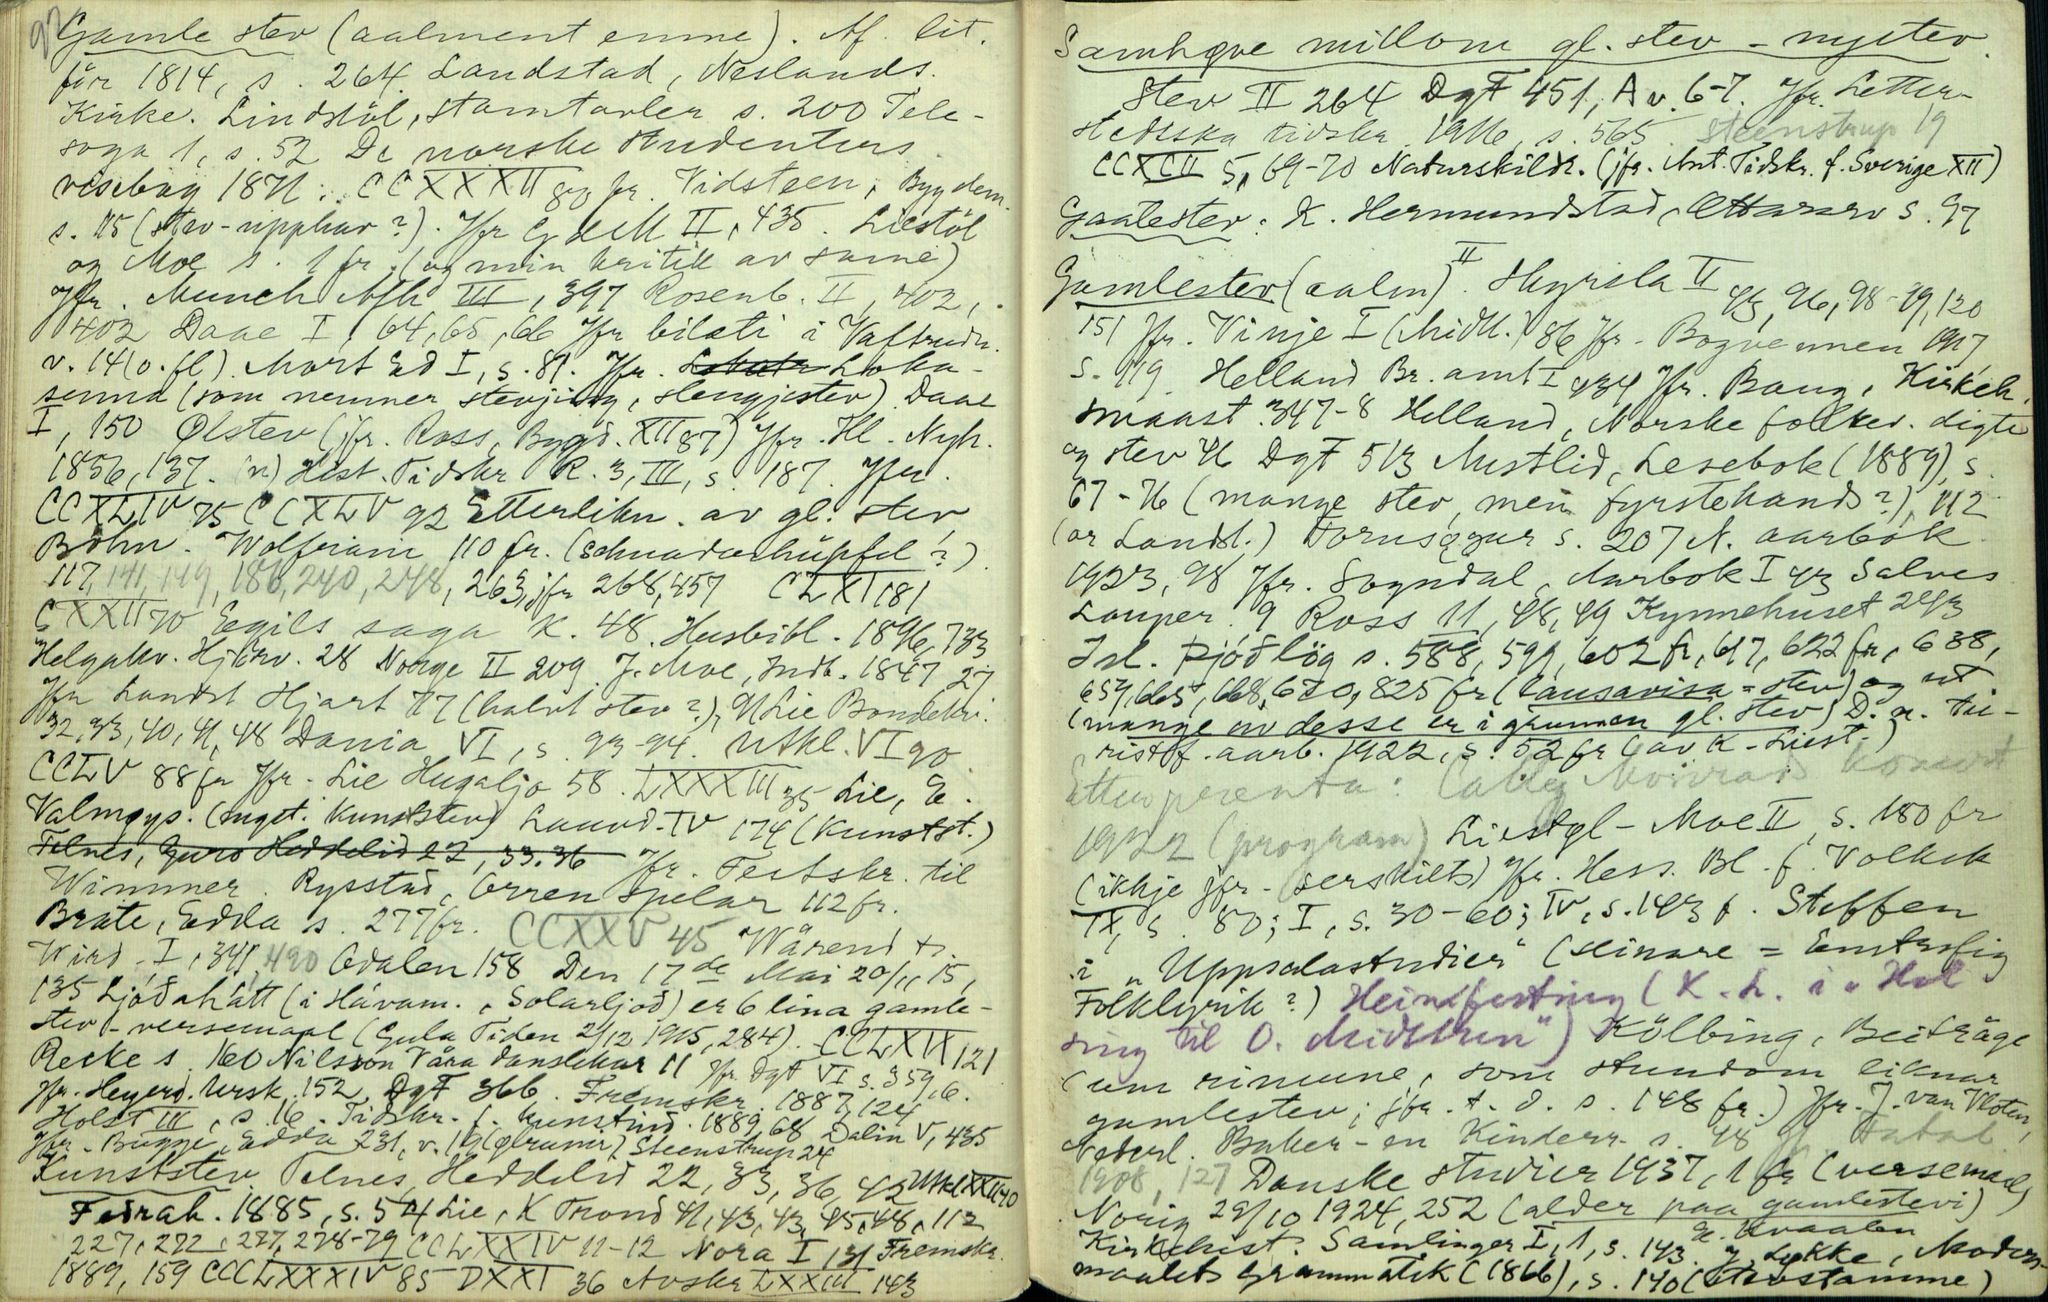 92
Gamle stev (aalment emne). Nf. lit.
för 1814, s. 264. Landstad, Neslands.
Kirke. Lindstöl, Stamtavler s. 200 Tele-
soga 1, s. 52 De norske Studenters
visebog 1871 CCXXXII 80 fr. Vidsteen, Bygdem.
s. 115 (stev-upphav?). Jfr G d M II, 435. Liestöl
og Moe s. 1 fr. (og min kritik av same)
Jfr. Munch Afh III, 397 Rosenb. II, 402,
402 Daae I, 64, 65, 66 Jfr bilæti i Vaftrudn.
v. 14 (o. fl). Mort Ed I, s. 81. Jfr. Loka-
senna (som nemner stevjing, slengjestev) Daae
I, 150 Ølstev (jfr. Ross, Bygd. XII 87) Jfr. Ill. Nyh.
1856, 137. (n) Hist. Tidskr R. 3, III, s. 187. Jfr.
CCXLIV 75 CCXLV 92 Etterlikn. av gl. stev
Böhn. Wolfram 110 fr. (schnaderhüpfel?)
117, 141, 149, 186, 240, 248, 263, jfr 268, 457 CLXI 181
CXXII 70 Egils saga K. 48. Husbibl. 1896, 733
Helgakv. Hjörv. 28 Norge II 209 J. Moe, Indb. 1847 27
Jfr Landst Hjart 77 (halvt stev?), Lie Bondekv.
32, 33, 40, 41, 48 Dania VI, s. 93-94. Utkl. VI 90
CCLV 88 fr Jfr. Lie Hugaljo 58. LXXXIII 35 Lie, E.
Valmgys. (inget. Kunststev) Laund. IV 174 (Kunstst.)
Felnes, Guro Heddelid 22, 33. 36 Jfr. Festskr. til
Wimmer. Rysstad, Orren spelar 112 fr.
Brate, Edda s. 277 fr. CCXXV 45 Wärend +.
Wird. I, 341, 420 Odalen 158 Den 17de Mai 20/11 15,
135 Ljóðahátt (i Hávam., Solarljoð) er 6 lina gamle-
stev-versemaal (Gula Tiden 2/12 1915, 284). CCLXIX 121
Recke s. 160 Nilsson Våra danslekar 11 Jfr. DgF VI s. 359, 6.
Jfr. Heyerd. Ursk. 152, DgF 366. Fremskr. 1887, 124
Holst III, s. 16. Tidskr. f. kunstind. 1889, 68 Dalin V, 435
Jfr. Bugge, Edda 231, v. 19 (Grimn.) Steenstrup 24
Kunststev Felnes, Heddelid 22, 33, 36, 42 Utkl XXII 40
Fedrah. 1885, s. 54 Lie, K Trond 41, 43, 43, 45, 48, 112
227, 272, 277, 278-79 CCLXXIV 11-12 Nora I, 31 Fremskr.
1889, 159 CCCLXXXIV 85 DXXI 36 Avskr LXXIII 143
Samhøve millom gl. stev – nystev
Stev II 264 DgF 451, A v. 6-7. Jfr. Letter-
stedtska tidskr. 1916, s. 565 Steenstrup 19
CCXCII 5, 69-70 Naturskildr. (jfr. Ant. Tidskr. f. Sverige XII)
Gaatestev: K. Hermundstad, s. 97
Gamlestev (aalm) II. Skyrsla II 43, 96, 98-99, 120
151 Jfr. Vinje I (Midtt.) 86 Jfr. Bogvennen 1917
s. 119. Helland Br. amt I 434 Jfr. Bang, Kirkeh.
smaast. 347-8 Helland, Norske folkev. digte
og stev 46 DgF 513 Austlid, Lesebok (1889), s.
67-76 (mange stev, men fyrstehands?), 112
(or Landst.) Fornsögur s. 207 N. aarbok
1923, 98 Jfr. Sogndal, Aarbok I 43 Salves
Lauper. 9 Ross 11, 48, 49 Kynnehuset 243
Isl. Þjóðlög s. 588, 599, 602 fr, 617, 622 fr, 638,
657, 665, 668, 670, 825 fr (Lausavisa = stev) og ut
(mange av desse er i grunnen gl. stev) D. n. tu-
ristf. aarb. 1922, s. 52 fr (av K. Liest.)
Etter perenta: Cally Monrad konsert
1922 (program) Liestøl-Moe II, s. 180 fr
(ikkje jfr. serskilt) Jfr. Hess. Bl. f. Volksk
IX, s. 80; I, s. 30-60; IV, s. 143 f. Steffen
i „Uppsalastudier" (seinare = Enstrofig
Folklyrik?) Heimfesting (K. L. i „Hel
sing til O. Midttun") Kölbing, Beiträge
(um rimune, som stundom liknar
gamlestev; jfr. t. d. s. 148 fr.) Jfr. J. van Vloten,
Nederl. Baker- en Kinderr. s. 48
1908, 127 Danske studier 1937, 1 fr (versemaal)
Norig 29/10 1924, 252 (alder paa gamlestevi)
Kirkehist. Samlinger I, 1, s. 143. J. Løkke, Moders-
maalets Grammatik (1866), s. 140